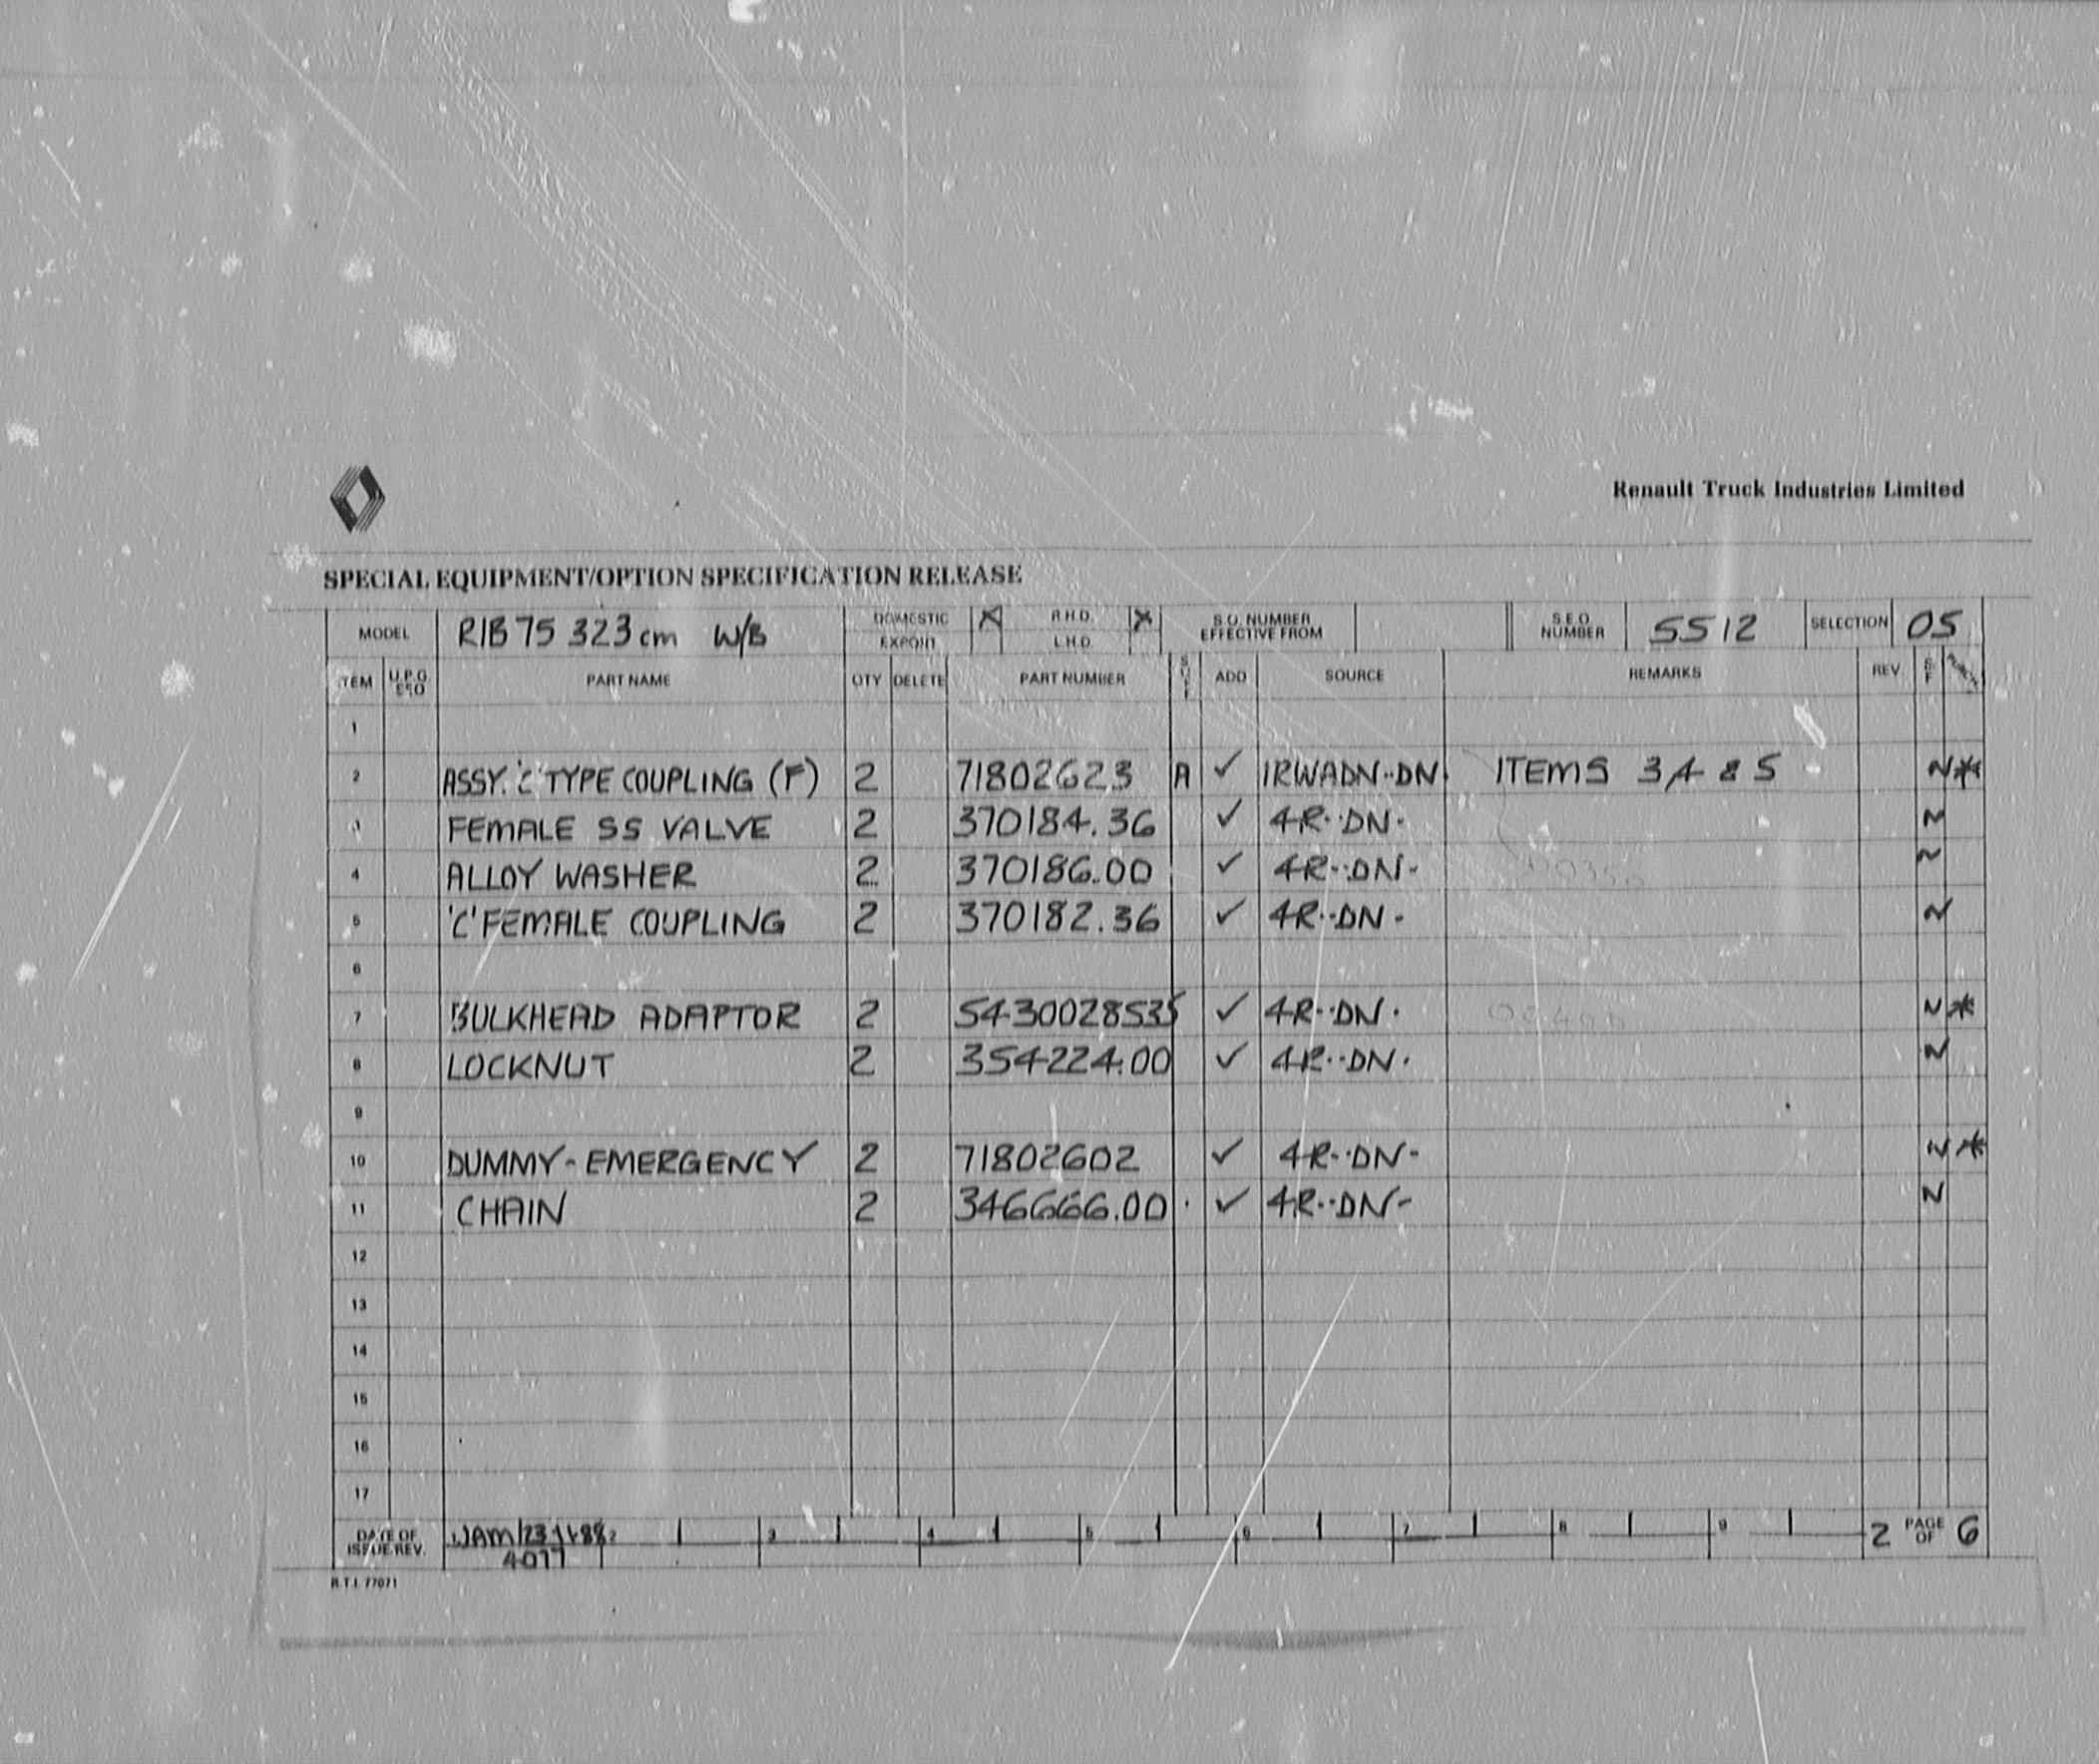 Renault Truck Industries Limited
SPECIAL EQUIPMENT/OPTION SPECIFICATION RELEASE
MODEL RIB 75 323 cm W/B DOMESTIC X R.H.D. X S.O. NUMBER S.E.O. NUMBER 5512 SELECTION 05
EXPORT L.H.D. EFFECTIVE FROM
ITEM U.P.G. PART NAME QTY DELETE PART NUMBER ADD SOURCE REMARKS REV
1
2 ASSY. 'C' TYPE COUPLING (F) 2 71802623 A ✓ 1RWADN··DN· ITEMS 3 4 & 5 N *
3 FEMALE SS VALVE 2 370184.36 ✓ 4R··DN· N
4 ALLOY WASHER 2 370186.00 ✓ 4R··DN- N
5 'C' FEMALE COUPLING 2 370182.36 ✓ 4R··DN- N
6
7 BULKHEAD ADAPTOR 2 5430028535 ✓ 4R··DN· N *
8 LOCKNUT 2 354224.00 ✓ 4R··DN· N
9
10 DUMMY - EMERGENCY 2 71802602 ✓ 4R··DN- N *
11 CHAIN 2 346666.00 ✓ 4R··DN- N
12
13
14
15
16
17
DATE OF ISSUE/REV. 2 3 4 5 6 7 8 9 2 PAGE OF 6
4077
R.T.I. 77071